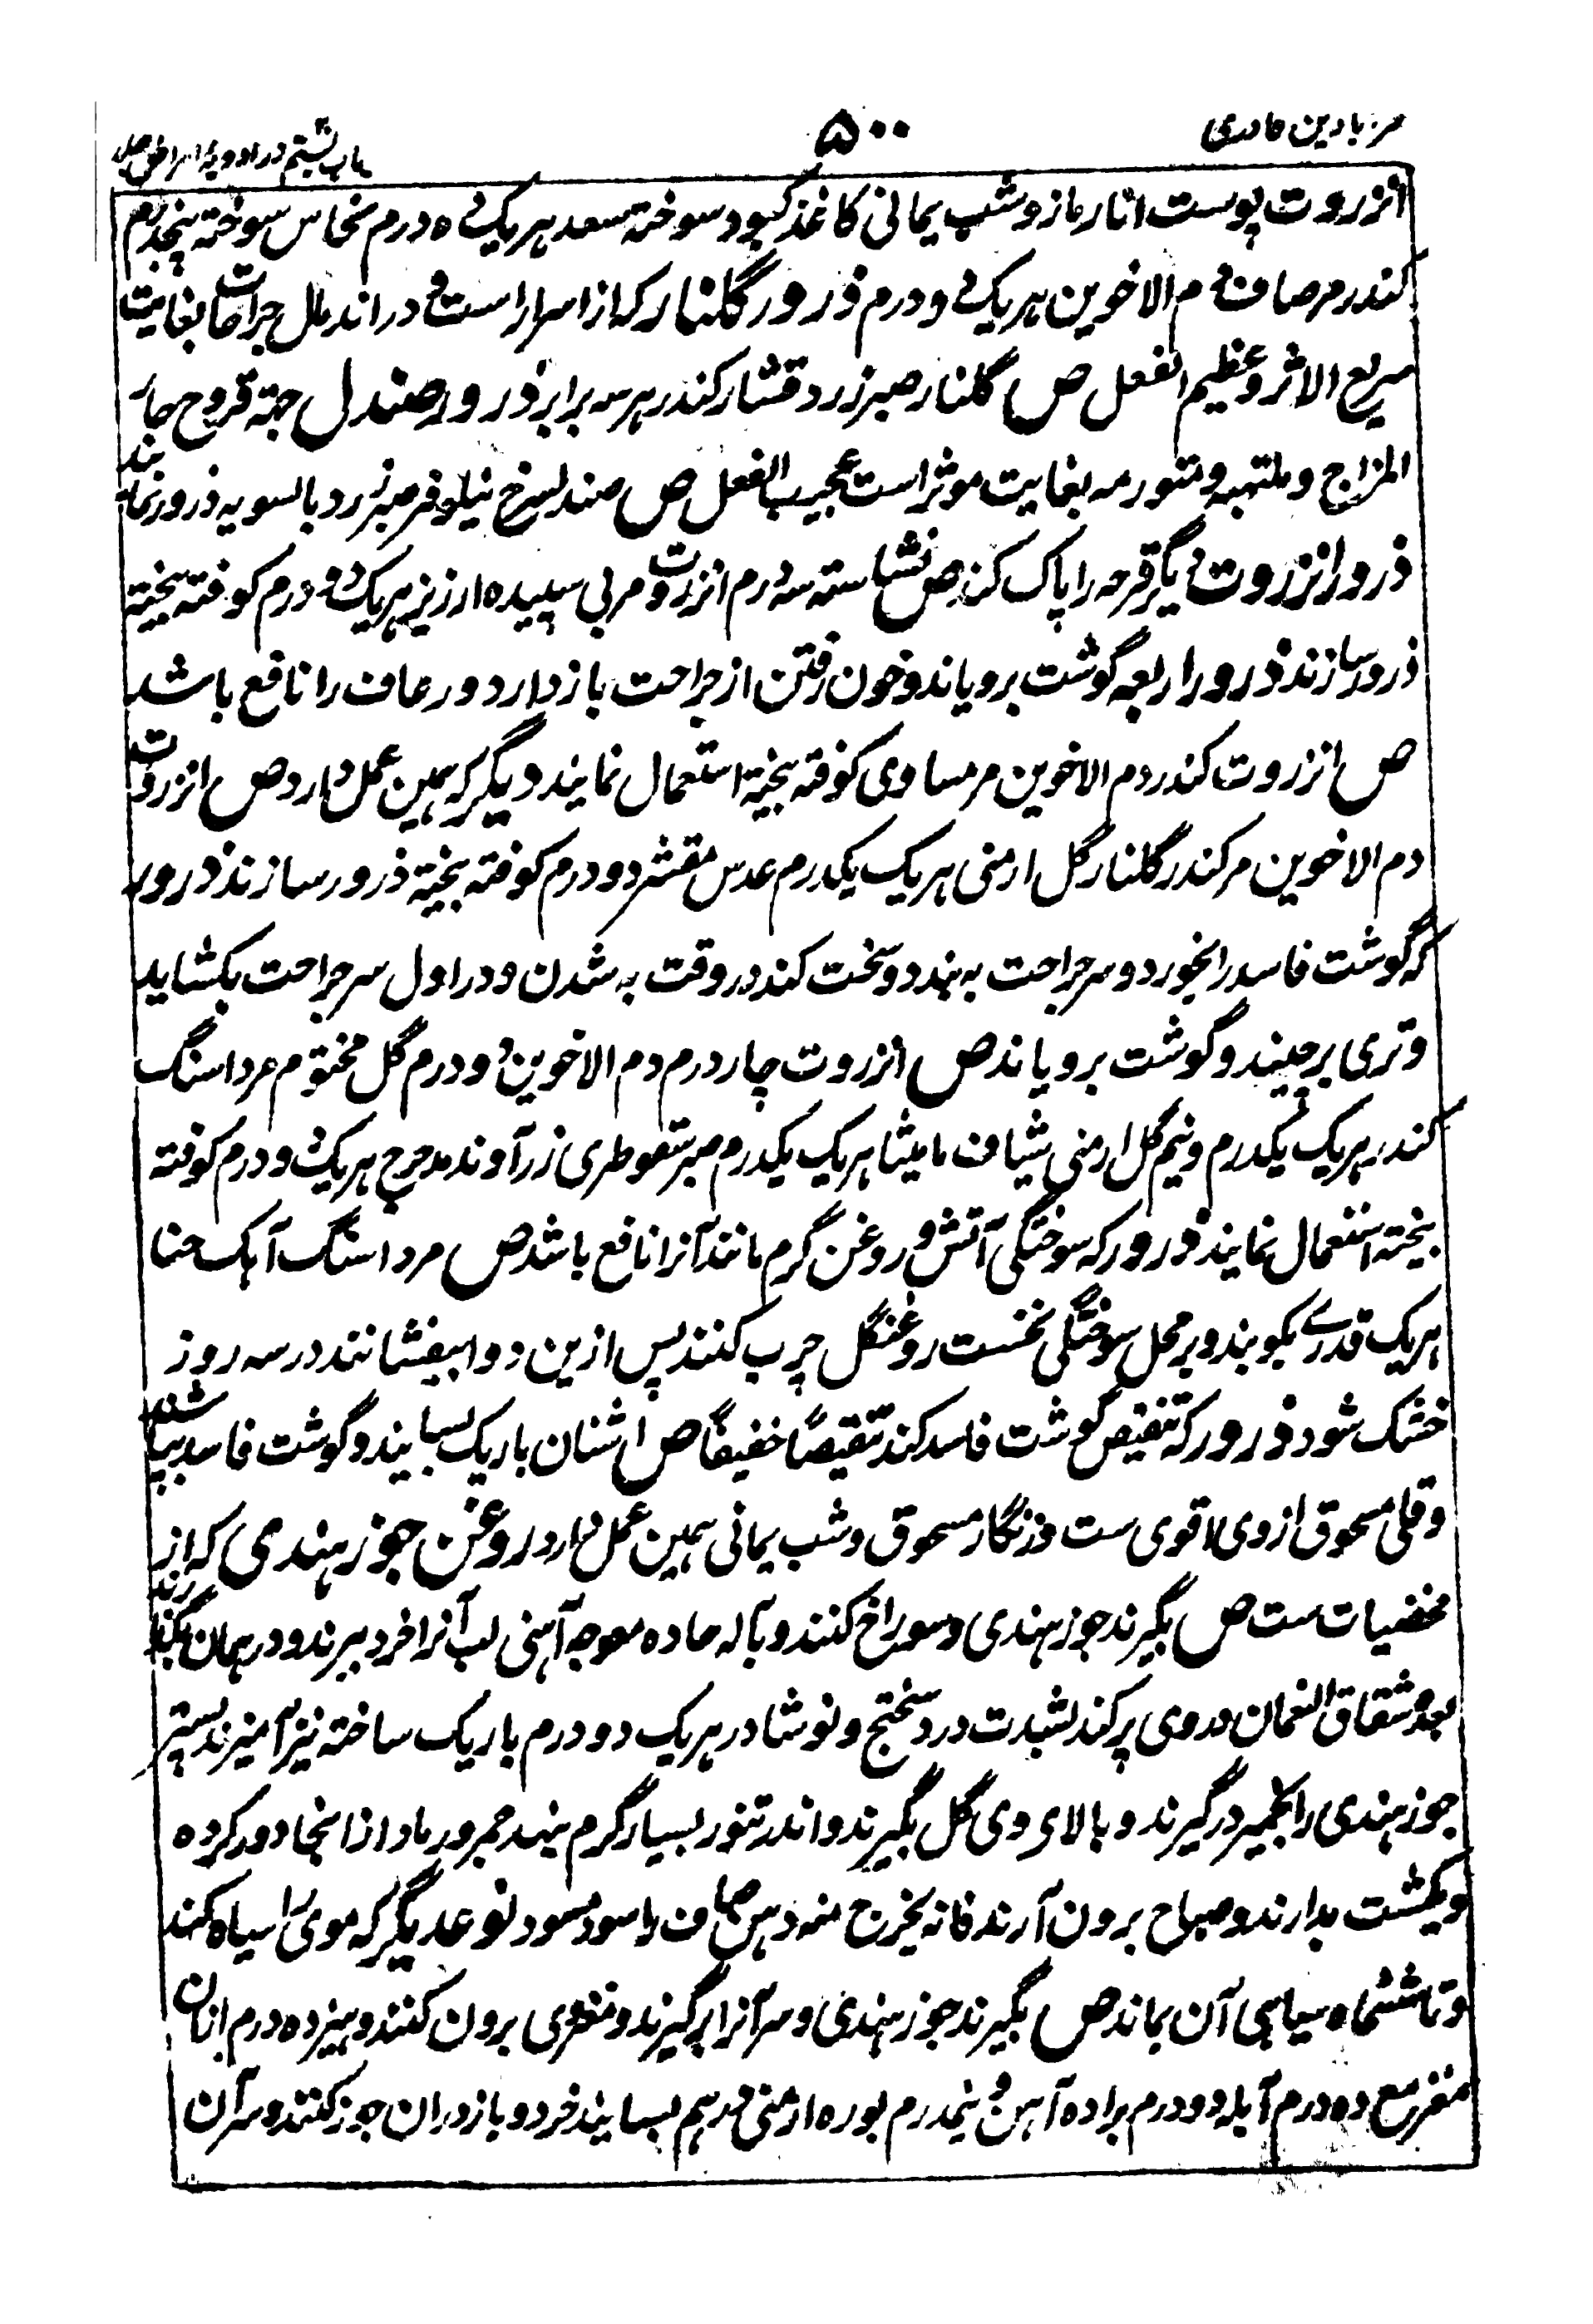 قرابادین قادری
۵۰۰
باب بستم در ادویهٔ امراض جلد
انزروت پوست انار مازو شب یمانی کاغذ کبود سوخته سعد هریک ده درم نحاس سوخته پنجدرم
کندر مر صاف دم الاخوین هریک دو درم ذرور گلنار که از اسرار است در اندمال جراحات بغایت
سریع الاثر و عظیم الفعل ص گلنار صبر زرد قشار کندر هر سه برابر ذرور صندل جهة قروح حار
المزاج و ملتهبه و متورمه بغایت موثر است عجیب الفعل ص صندل سرخ نیلوفر صبر زرد بالسویه ذرور نمایند
ذرور انزروت دیگر قرحه را پاک کند ص نشاسته سه درم انزروت مربی سپیده ارزیز هریک دو درم کوفته بیخته
ذرور سازند ذرور اربعه گوشت برویاند و خون رفتن از جراحت باز دارد و رعاف را نافع باشد
ص انزروت کندر دم الاخوین مر مساوی کوفته بیخته استعمال نمایند دیگر که همین عمل دارد ص انزروت
دم الاخوین مر کندر گلنار گل ارمنی هریک یکدرم عدس مقشر دو درم کوفته بیخته ذرور سازند ذرور
که گوشت فاسد را بخورد و سر جراحت به بندد و سخت کند در وقت به شدن و در اول سر جراحت بکشاید
و تری برچیند و گوشت برویاند ص انزروت چار درم دم الاخوین دو درم گل مختوم مرداسنگ
کندر هریک یکدرم و نیم گل ارمنی شیاف مامیثا هریک یکدرم صبر سقوطری زرآوند مدحرج هریک دو درم کوفته
بیخته استعمال نمایند ذرور که سوختگی آتش و روغن گرم مانند آنرا نافع باشد ص مرداسنگ آهک حنا
هریک قدرے بکوبند و بر محل سوختگی نخست روغن گل چرب کنند پس ازین دوا بیفشانند در سه روز
خشک شود ذرور که تنقیص گوشت فاسد کند تنقیصًا خفیفًا ص اشنان باریک بسایند و گوشت فاسد بپاشند
و قلی مسحوق از وی اقوی ست و زنگار مسحوق و شب یمانی همین عمل دارد روغن جوز هندی که از
مخضبات ست ص بگیرند جوز هندی و سوراخ کنند و بآله حاده معوجه آهنی لب آنرا خرد ببرند و در همان بگذارند
بعده شقاق النعمان در وی پر کند بشدت و روسختج و نوشادر هریک دو درم باریک ساخته نیز آمیزند پستر
جوز هندی را بخمیر درگیرند و بالای وی گل بگیرند و اندر تنور بسیار گرم نهند جمر و رماد از انجا دور کرده
و یکشب بدارند و صباح برون آرند فانه یخرج منه دهن صاف اسود مسود نوعدیگر که موی را سیاه کند
و تا ششماه سیاهی آن بماند ص بگیرند جوز هندی و سر آنرا برگیرند و مغز وی برون کنند و پنزده درم ازان
مغز مع ده درم آمله و دو درم براده آهن و نیمدرم بوره ارمنی در هم بسایند خرد و باز دران جوز کنند و سر آن